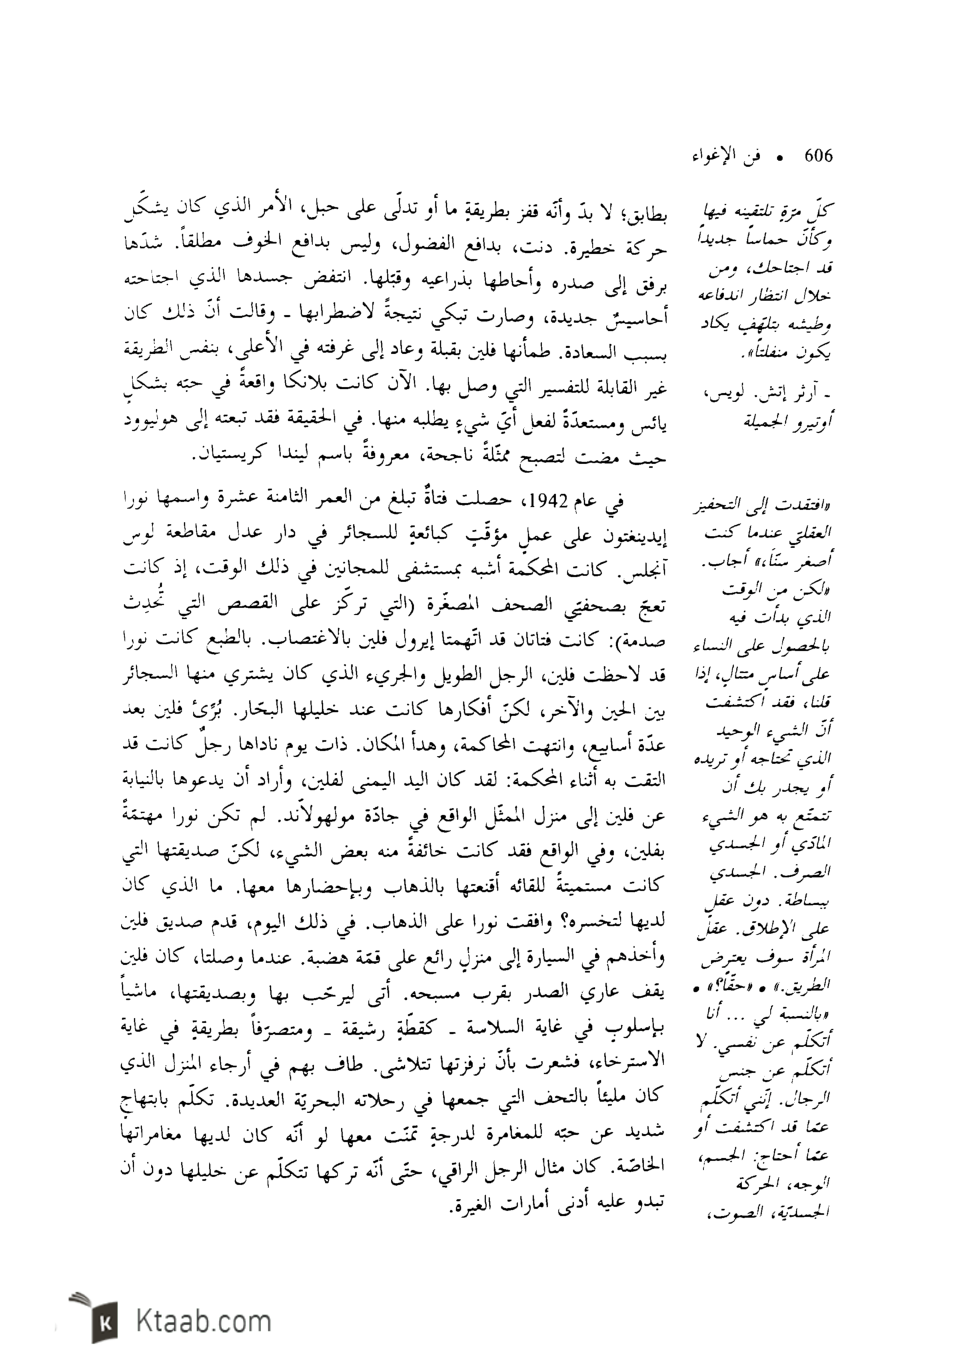 606 • فن الإغواء
بطابق؛ لا بدّ وأنّه قفز بطريقةٍ ما أو تدلّى على حبل، الأمر الذي كان يشكّل
حركة خطيرة. دنت، بدافع الفضول، وليس بدافع الخوف مطلقاً. شدّها
برفق إلى صدره وأحاطها بذراعيه وقبّلها. انتفض جسدها الذي اجتاحته
أحاسيسٌ جديدة، وصارت تبكي نتيجةً لاضطرابها ـ وقالت أنّ ذلك كان
بسبب السعادة. طمأنها فلين بقبلة وعاد إلى غرفته في الأعلى، بنفس الطريقة
غير القابلة للتفسير التي وصل بها. الآن كانت بلانكا واقعةً في حبّه بشكلٍ
يائس ومستعدّةً لفعل أيّ شيءٍ يطلبه منها. في الحقيقة فقد تبعته إلى هوليوود
حيث مضت لتصبح ممثّلةً ناجحة، معروفةً باسم ليندا كريستيان.
في عام 1942، حصلت فتاةٌ تبلغ من العمر الثامنة عشرة واسمها نورا
إيدينغتون على عملٍ مؤقّتٍ كبائعةٍ للسجائر في دار عدل مقاطعة لوس
آنجلس. كانت المحكمة أشبه بمستشفى للمجانين في ذلك الوقت، إذ كانت
تعجّ بصحفيّي الصحف المصغّرة (التي تركّز على القصص التي تُحُدِث
صدمة): كانت فتاتان قد اتّهمتا إيرول فلين بالاغتصاب. بالطبع كانت نورا
قد لاحظت فلين، الرجل الطويل والجريء الذي كان يشتري منها السجائر
بين الحين والآخر، لكنّ أفكارها كانت عند خليلها البحّار. بُرِّئ فلين بعد
عدّة أسابيع، وانتهت المحاكمة، وهدأ المكان. ذات يوم ناداها رجلٌ كانت قد
التقت به أثناء المحكمة: لقد كان اليد اليمنى لفلين، وأراد أن يدعوها بالنيابة
عن فلين إلى منزل الممثّل الواقع في جادّة مولهولاّند. لم تكن نورا مهتمّةً
بفلين، وفي الواقع فقد كانت خائفةً منه بعض الشيء، لكنّ صديقتها التي
كانت مستميتةً للقائه أقنعتها بالذهاب وبإحضارها معها. ما الذي كان
لديها لتخسره؟ وافقت نورا على الذهاب. في ذلك اليوم، قدم صديق فلين
وأخذهم في السيارة إلى منزلٍ رائع على قمّة هضبة. عندما وصلتا، كان فلين
يقف عاري الصدر بقرب مسبحه. أتى ليرحّب بها وبصديقتها، ماشياً
بإسلوبٍ في غاية السلاسة ـ كقطّةٍ رشيقة ـ ومتصرّفاً بطريقةٍ في غاية
الاسترخاء، فشعرت بأنّ نرفزتها تتلاشى. طاف بهم في أرجاء المنزل الذي
كان مليئاً بالتحف التي جمعها في رحلاته البحريّة العديدة. تكلّم بابتهاجٍ
شديد عن حبّه للمغامرة لدرجةٍ تمنّت معها لو أنّه كان لديها مغامراتها
الخاصّة. كان مثال الرجل الراقي، حتّى أنّه تركها تتكلّم عن خليلها دون أن
تبدو عليه أدنى أمارات الغيرة.
كلّ مرّةٍ تلتقينه فيها
وكأنّ حماساً جديداً
قد اجتاحك، ومن
خلال انتظار اندفاعه
وطيشه بتلهّفٍ يكاد
يكون منفلتاً».
ـ آرثر إتش. لويس،
أوتيرو الجميلة
«افتقدت إلى التحفيز
العقليّ عندما كنت
أصغر سنّاً،» أجاب.
«لكن من الوقت
الذي بدأت فيه
بالحصول على النساء
على أساسٍ متتالٍ، إذا
قلنا، فقد اكتشفت
أنّ الشيء الوحيد
الذي تحتاجه أو تريده
أو يجدر بك أن
تتمتّع به هو الشيء
المادّي أو الجسدي
الصرف. الجسدي
ببساطة. دون عقلٍ
على الإطلاق. عقل
المرأة سوف يعترض
الطريق.» • «حقّاً؟» •
«بالنسبة لي ... أنا
أتكلّم عن نفسي. لا
أتكلّم عن جنس
الرجال. إنّني أتكلّم
عمّا قد اكتشفت أو
عمّا أحتاج: الجسم،
الوجه، الحركة
الجسديّة، الصوت،
Ktaab.com